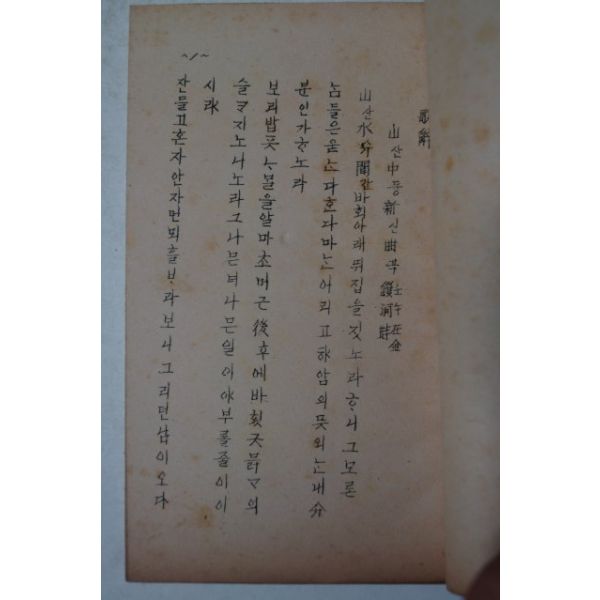 ~1~
歌辭
山산中듕新신曲곡 壬午在金
鎖洞時
山산水슈間간바회아래뛰집을짓노라ᄒᆞ니그모론
놈들은욷ᄂᆞᆫ다ᄒᆞᆫ다마ᄂᆞᆫ어리고햐암의뜻의ᄂᆞᆫ내分
분인가ᄒᆞ노라
보리밥픗ᄂᆞᄆᆞᆯ을알마초머근後후에바횟긋믉ᄀᆞ의
슬ᄏᆞ지노니노라그나믄녀나믄일이야부롤줄이이
시랴
잔들고혼자안자먼뫼흘ᄇᆞ라보니그리던님이오다